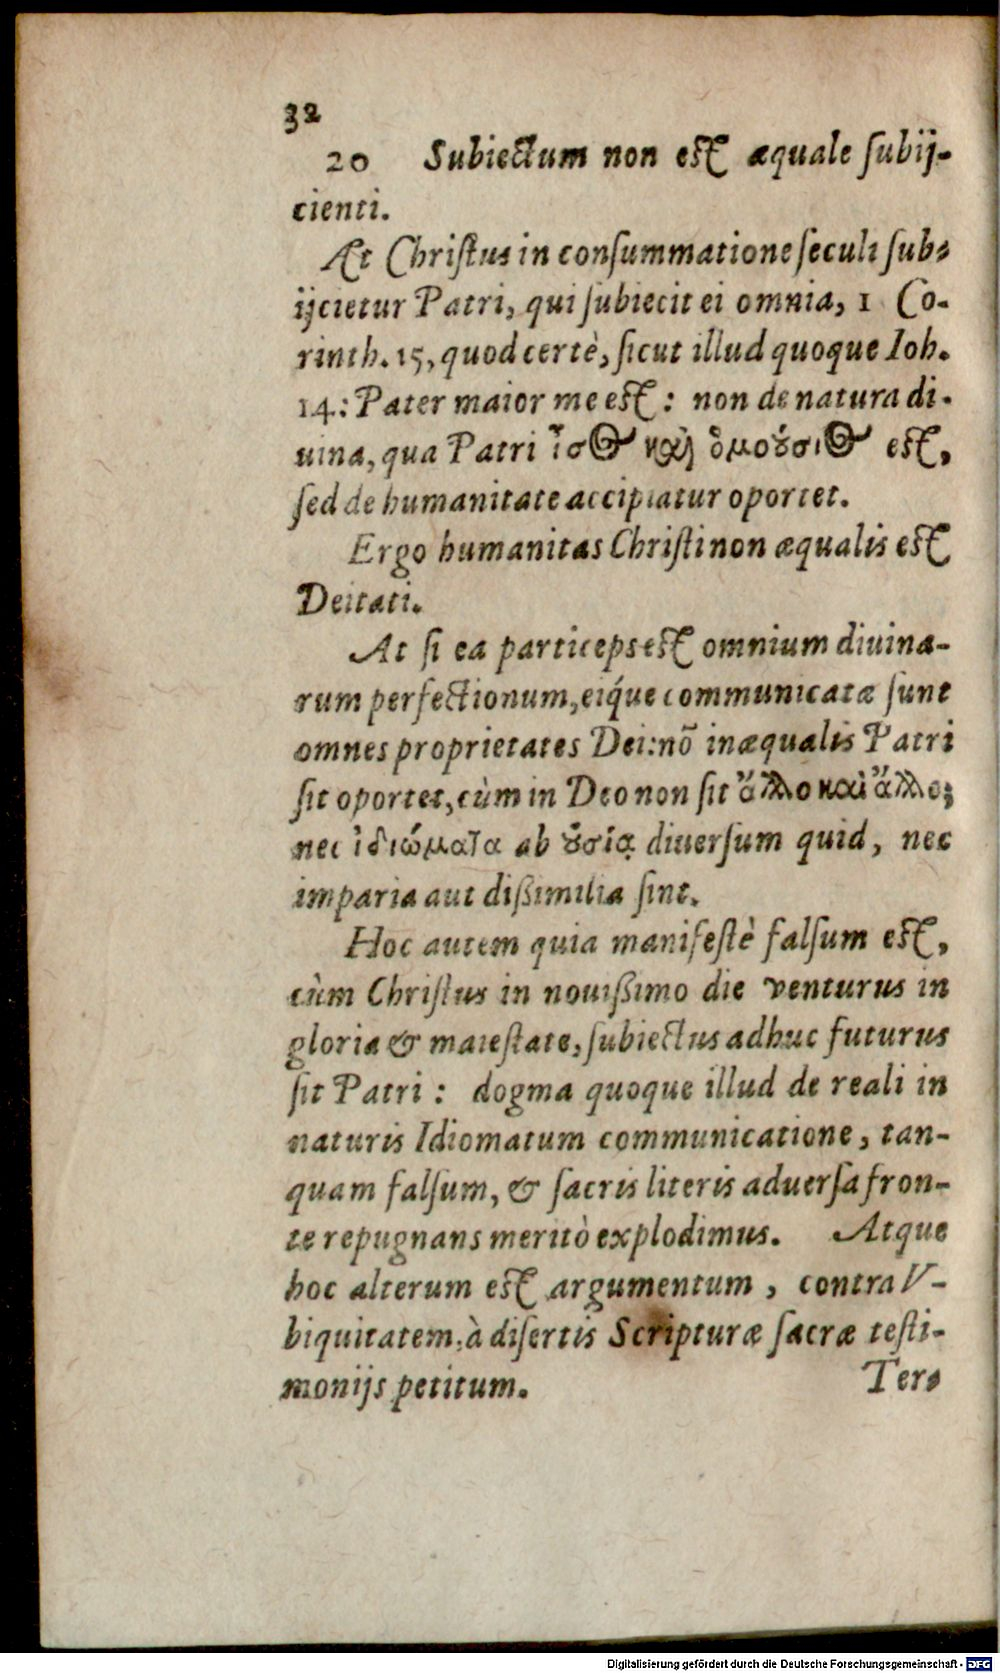 32
20 Subiectum non est æquale ſubij-
cienti.
Æt Chriſtus in conſummatione ſeculi ſub-
ijcietur Patri, qui ſubiecit ei omnia, 1 Co-
rinth. 15, quod certè, ſicut illud quoque Ioh.
14.: Pater maior me eſt : non de natura di-
uina, qua Patri ἴσ&#x1D411; καὶ ὁμούσι&#x1D411; eſt,
ſed de humanitate accipiatur oportet.
Ergo humanitas Chriſti non æqualis eſt
Deitati.
At ſi ea particeps eſt omnium diuina-
rum perfectionum, eiq́ue communicatæ ſunt
omnes proprietates Dei: nõ inæqualis Patri
ſit oportet, cùm in Deo non ſit ἄλλο καὶ ἄλλο;
nec ἰδιώματα ab ȣ̓σίᾳ diuerſum quid, nec
imparia aut dißimilia ſint.
Hoc autem quia manifeſtè falſum eſt,
cùm Chriſtus in nouißimo die venturus in
gloria & maieſtate, ſubiectus adhuc futurus
ſit Patri : dogma quoque illud de reali in
naturis Idiomatum communicatione, tan-
quam falſum, & ſacris literis aduerſa fron-
te repugnans meritò explodimus. Atque
hoc alterum eſt argumentum, contra V-
biquitatem, à diſertis Scripturæ ſacræ teſti-
monijs petitum.
Ter-
Digitalisierung gefördert durch die Deutsche Forschungsgemeinschaft - DFG